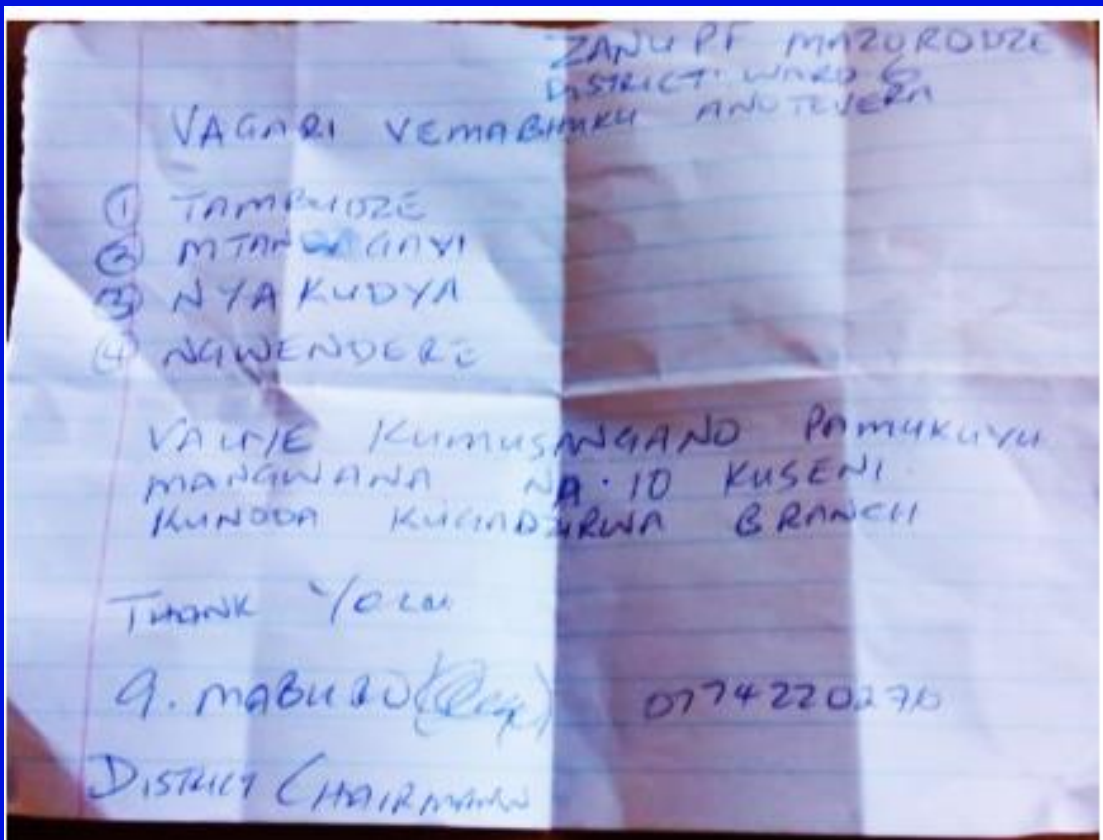 ZANU PF MAZORODZE
DISTRICT WARD 6
VAGARI VEMABHUKU ANOTEVERA
① TAMBUDZE
② MTAN GAYI
③ NYAKUDYA
④ NGWENDERE
VAUYE KUMUSANGANO PAMUKUYU
MANGWANA NA·10 KUSENI
KUNODA KUGADZIRWA BRANCH
THANK YOU
G. MABUKU
0774220270
DISTRICT CHAIRMAN